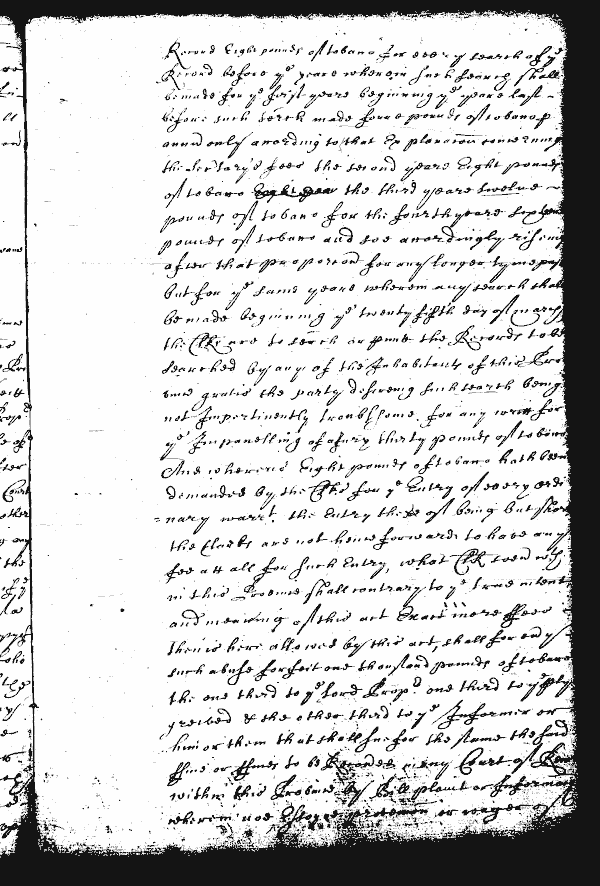 Record Eight pounds of tobacco for every search of ye
Record before ye yeares wherein such search shall
be made for ye first yeare beginning ye yeare last
before such serch made foure pounds of tobacco p
annu only according to that Explanacon concerning
the Sectarys fees the second yeare Eight pounds
of tobacco the third yeare twelve
pounds of tobacco for the fourth yeare sixteen
pounds of tobacco and soe accordingly riseing
after that proporcon for any longer tyme past
but for ye same yeare wherein any search shall
be made beginning ye twenty fifth day of march
the Clks are to serch or pmitt the Records to be
searched by any of the Inhabitants of this Pro
vince gratis the party desireing such search being
not Impertinently troublsome for any writt for
ye Impanelling of a Jury thirty pounds of tobacco
And whereas Eight pounds of tobacco hath been
demanded by the Clks for ye Entry of every ordi
=nary warrt. the Entry thereof being but short
the Clarks are not hence forward to have any
fee att all for such Entry, what Clk soever wth
in this Province shall contrary to ye true intent
and meaning of this act Exact more ffees
then is here allowed by this act, shall for every
such abuse forfeit one thousand pounds of tobacco
the one third to ye lord Propr one third to ye pty
greived & the other third to ye Informer or
him or them that shall sue for the same the said
ffine or ffines to be Recovered in any Court of Record
within this Province by Bill plaint or Informacon
wherein noe Essoyne proteccon or wager of